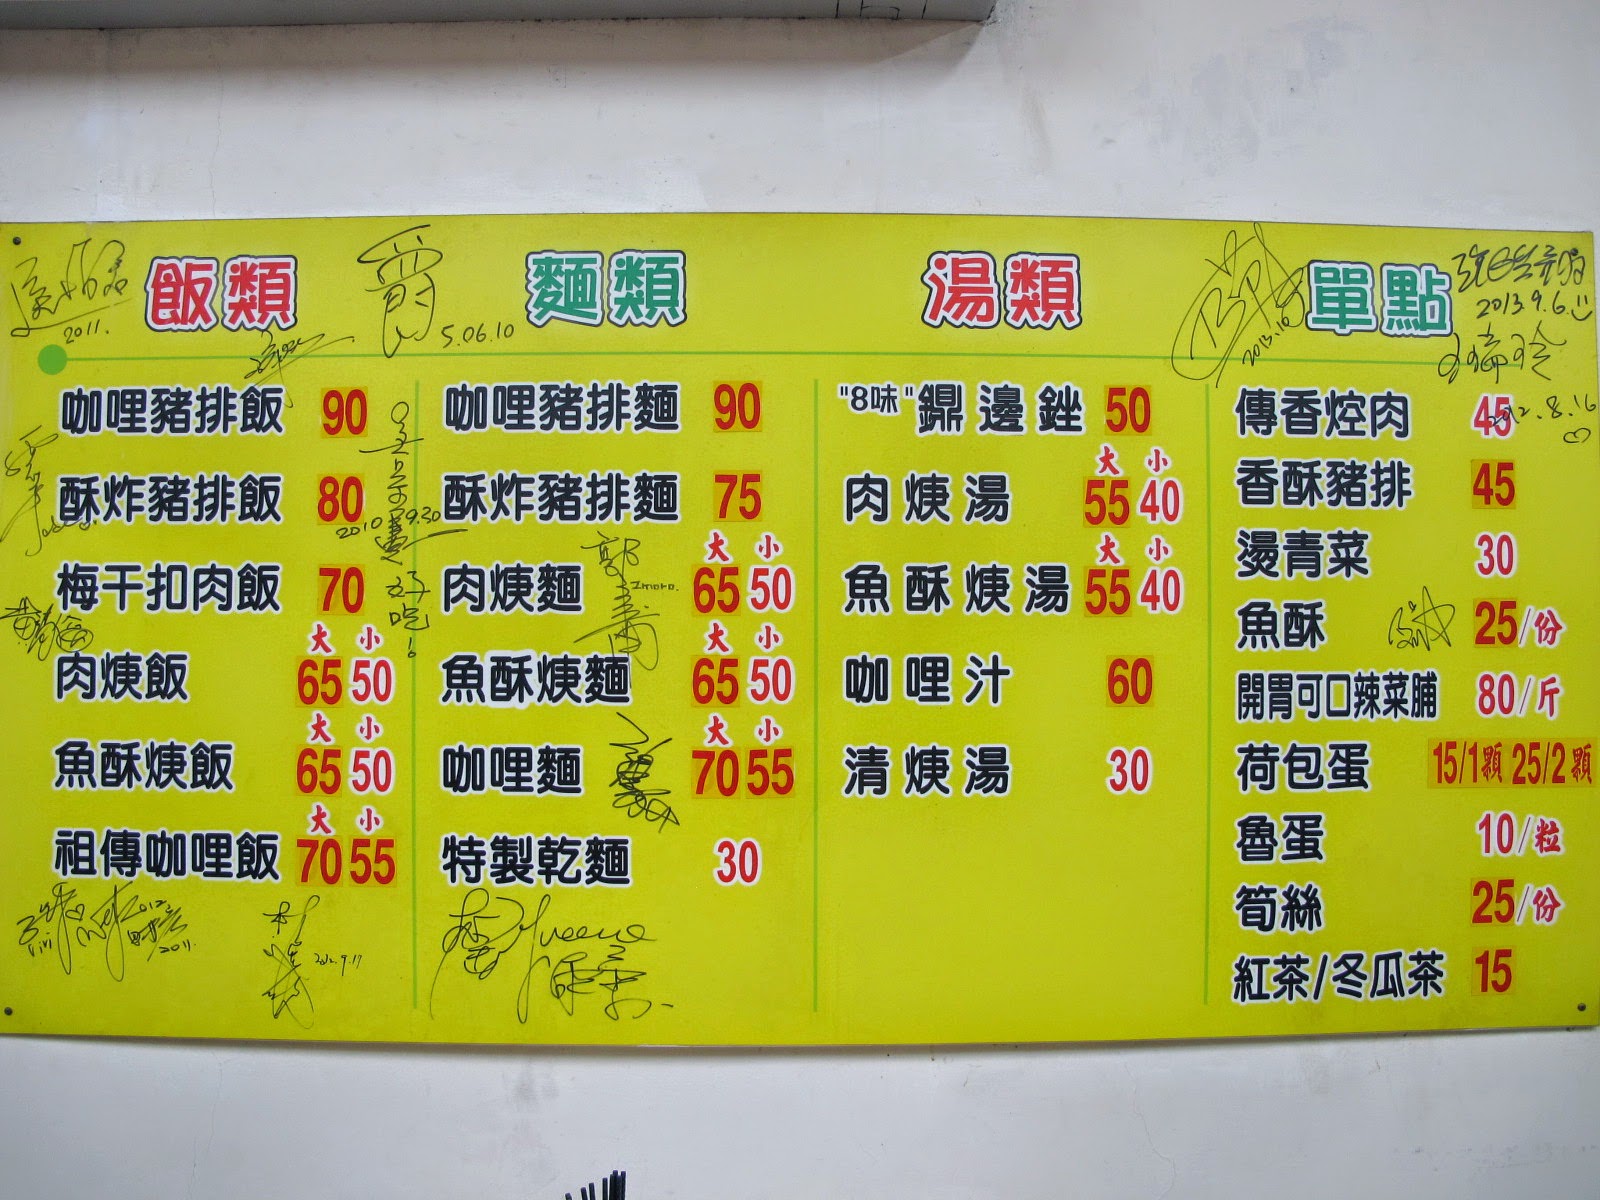 飯類
咖哩豬排飯 90
酥炸豬排飯 80
梅干扣肉飯 70
大 小
肉焿飯 65 50
大 小
魚酥焿飯 65 50
大 小
祖傳咖哩飯 70 55
麵類
咖哩豬排麵 90
酥炸豬排麵 75
大 小
肉焿麵 65 50
大 小
魚酥焿麵 65 50
大 小
咖哩麵 70 55
特製乾麵 30
湯類
"8味"鼎邊銼 50
大 小
肉焿湯 55 40
大 小
魚酥焿湯 55 40
咖哩汁 60
清焿湯 30
單點
傳香焢肉 45
香酥豬排 45
燙青菜 30
魚酥 25/份
開胃可口辣菜脯 80/斤
荷包蛋 15/1顆 25/2顆
魯蛋 10/粒
筍絲 25/份
紅茶/冬瓜茶 15
2011.
5.06.10
2010 9.30
好吃!
2013.10
2013.9.6
2012.8.16
2012.9.17
2011.